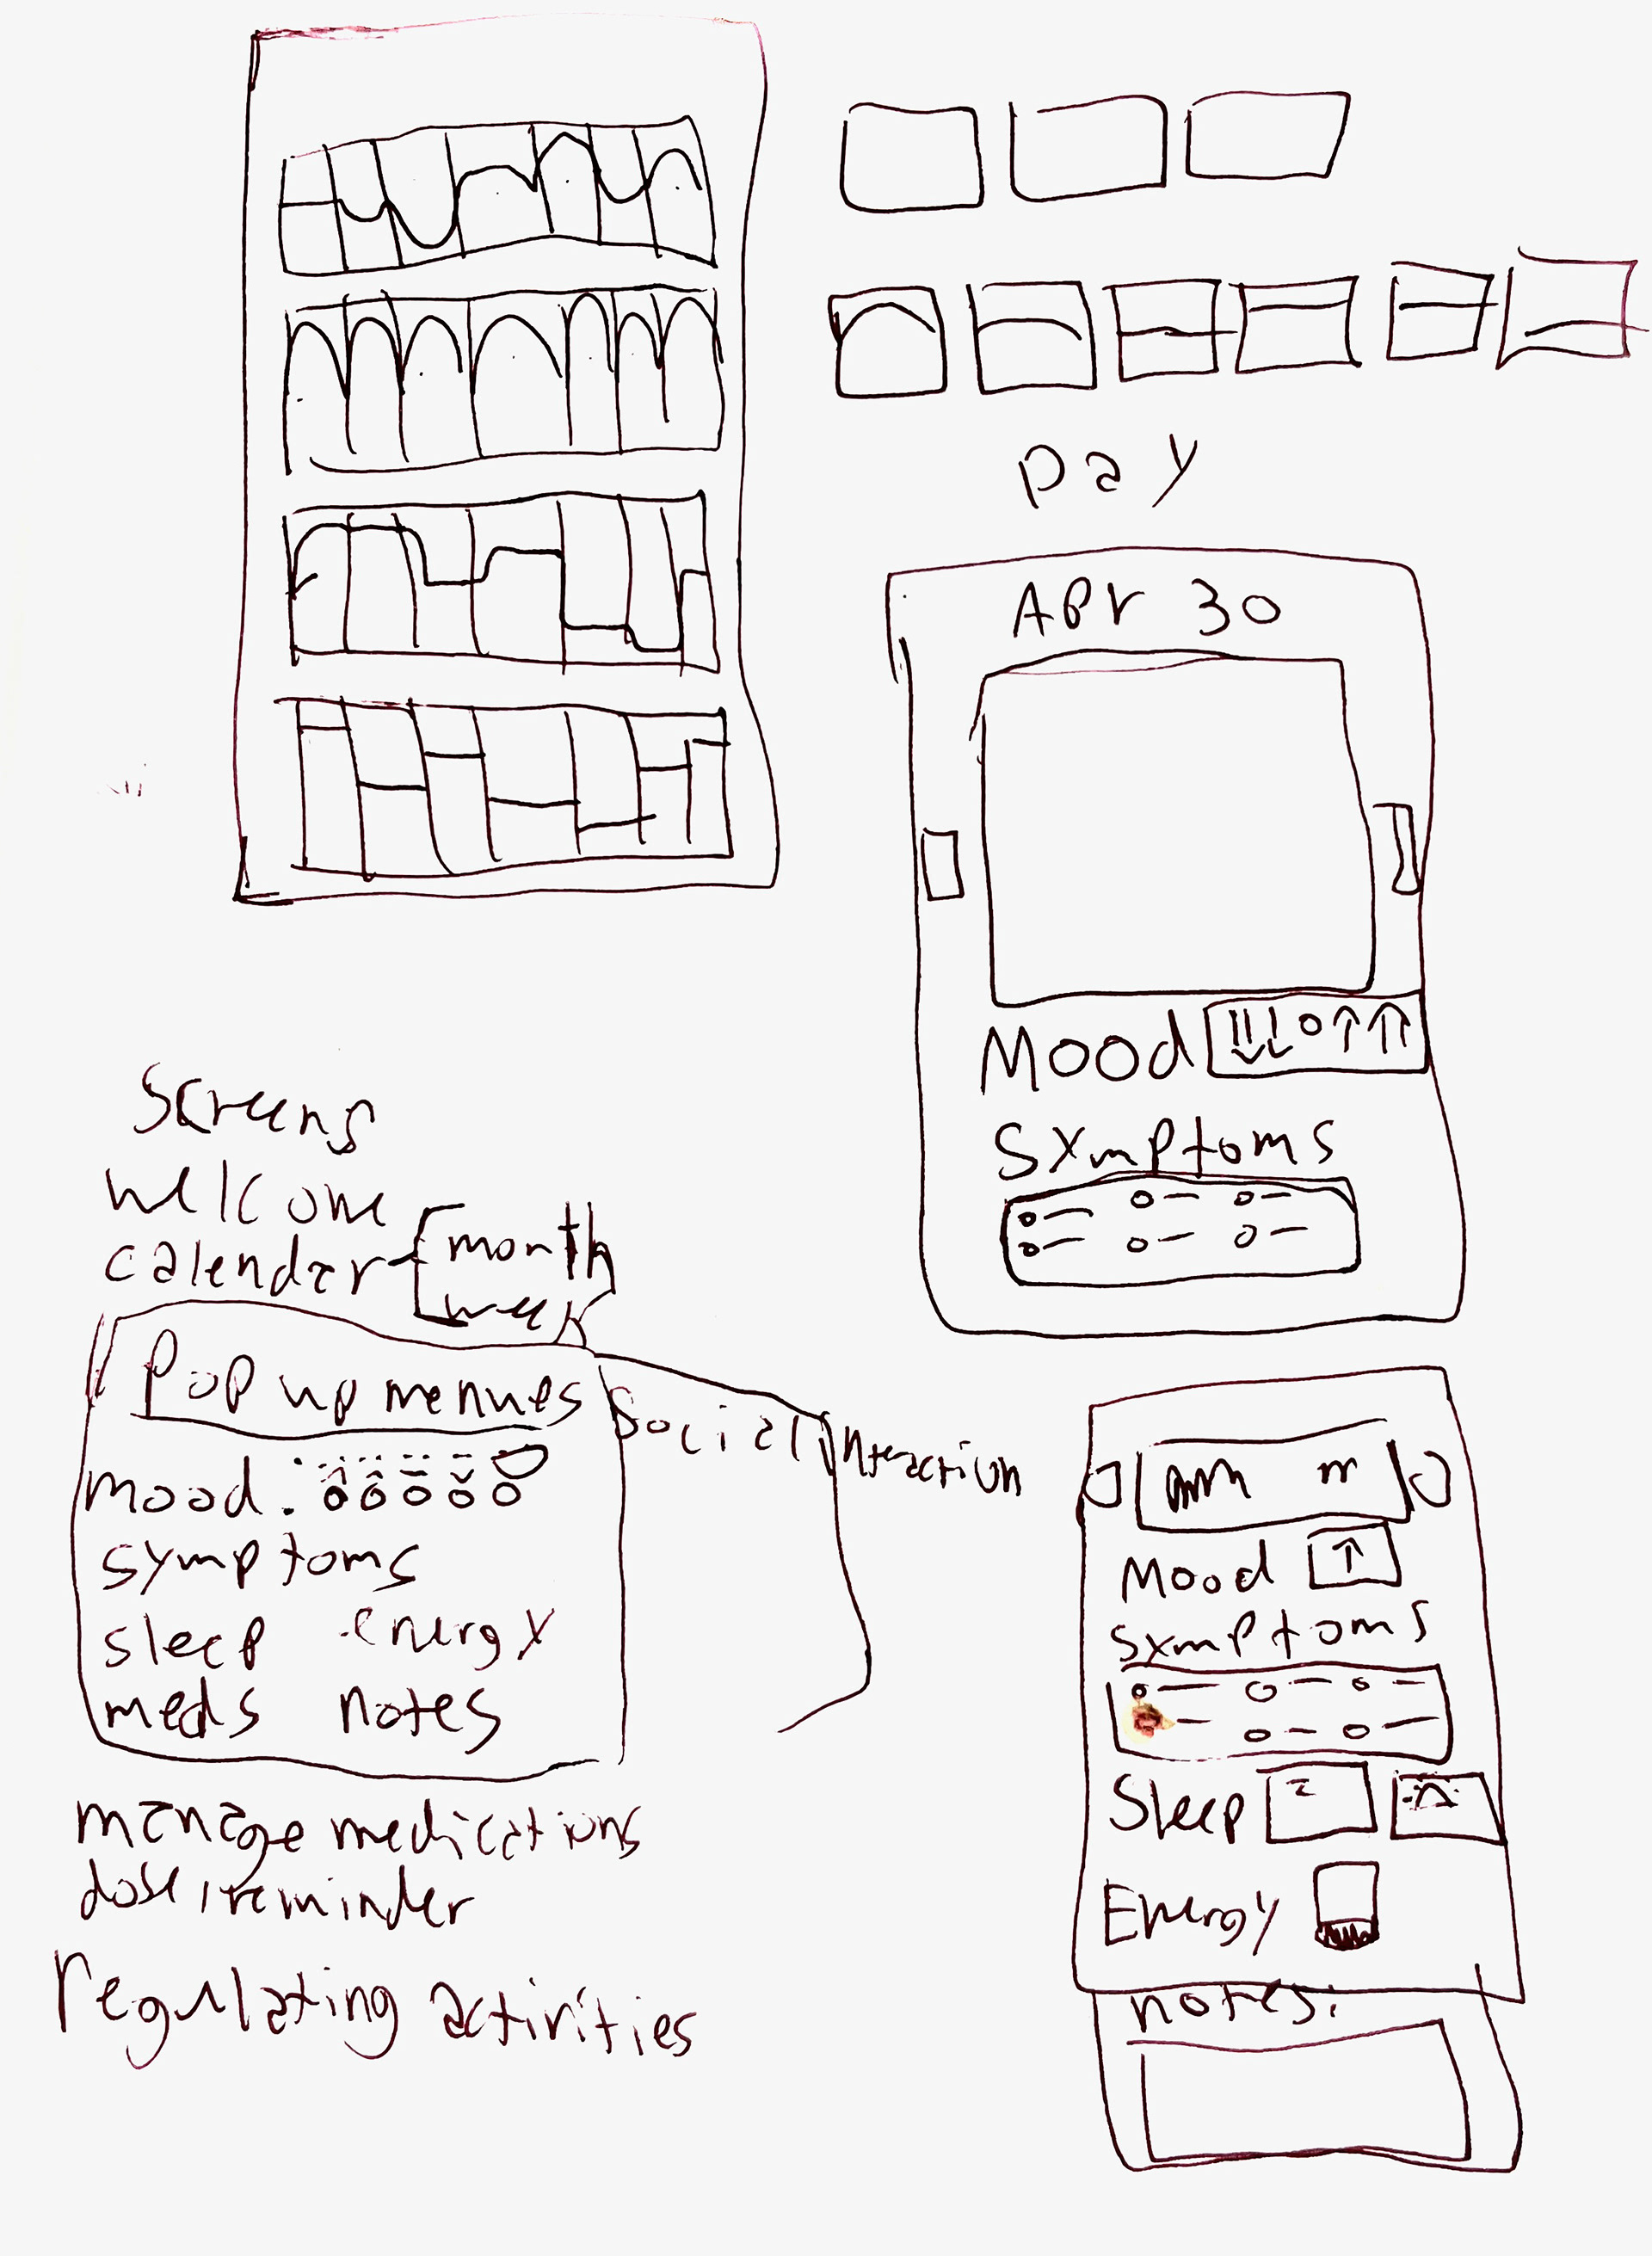 pay
Apr 30
Mood
Symptoms
Screens
welcome
calendar
month
week
Pop up menues
Social interaction
mood
symptoms
sleep energy
meds notes
manage medications
dose/reminder
regulating activities
Mood
Symptoms
Sleep
Energy
notes: